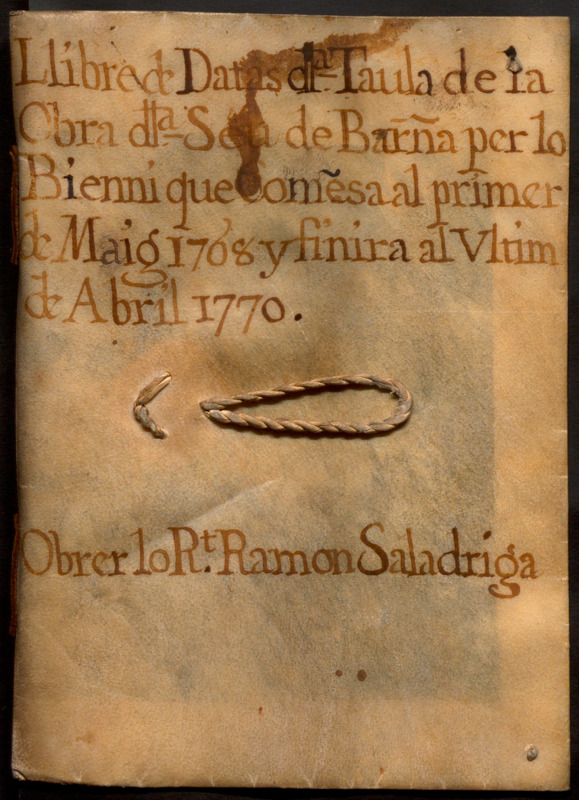 Llibre de Datas dla Taula de la
Obra dlla Seu de Barña per lo
Bienni que Comẽsa al primer
de Maig 1768 y finira al Vltim
de Abril 1770.
Obrer lo Rt. Ramon Saladriga